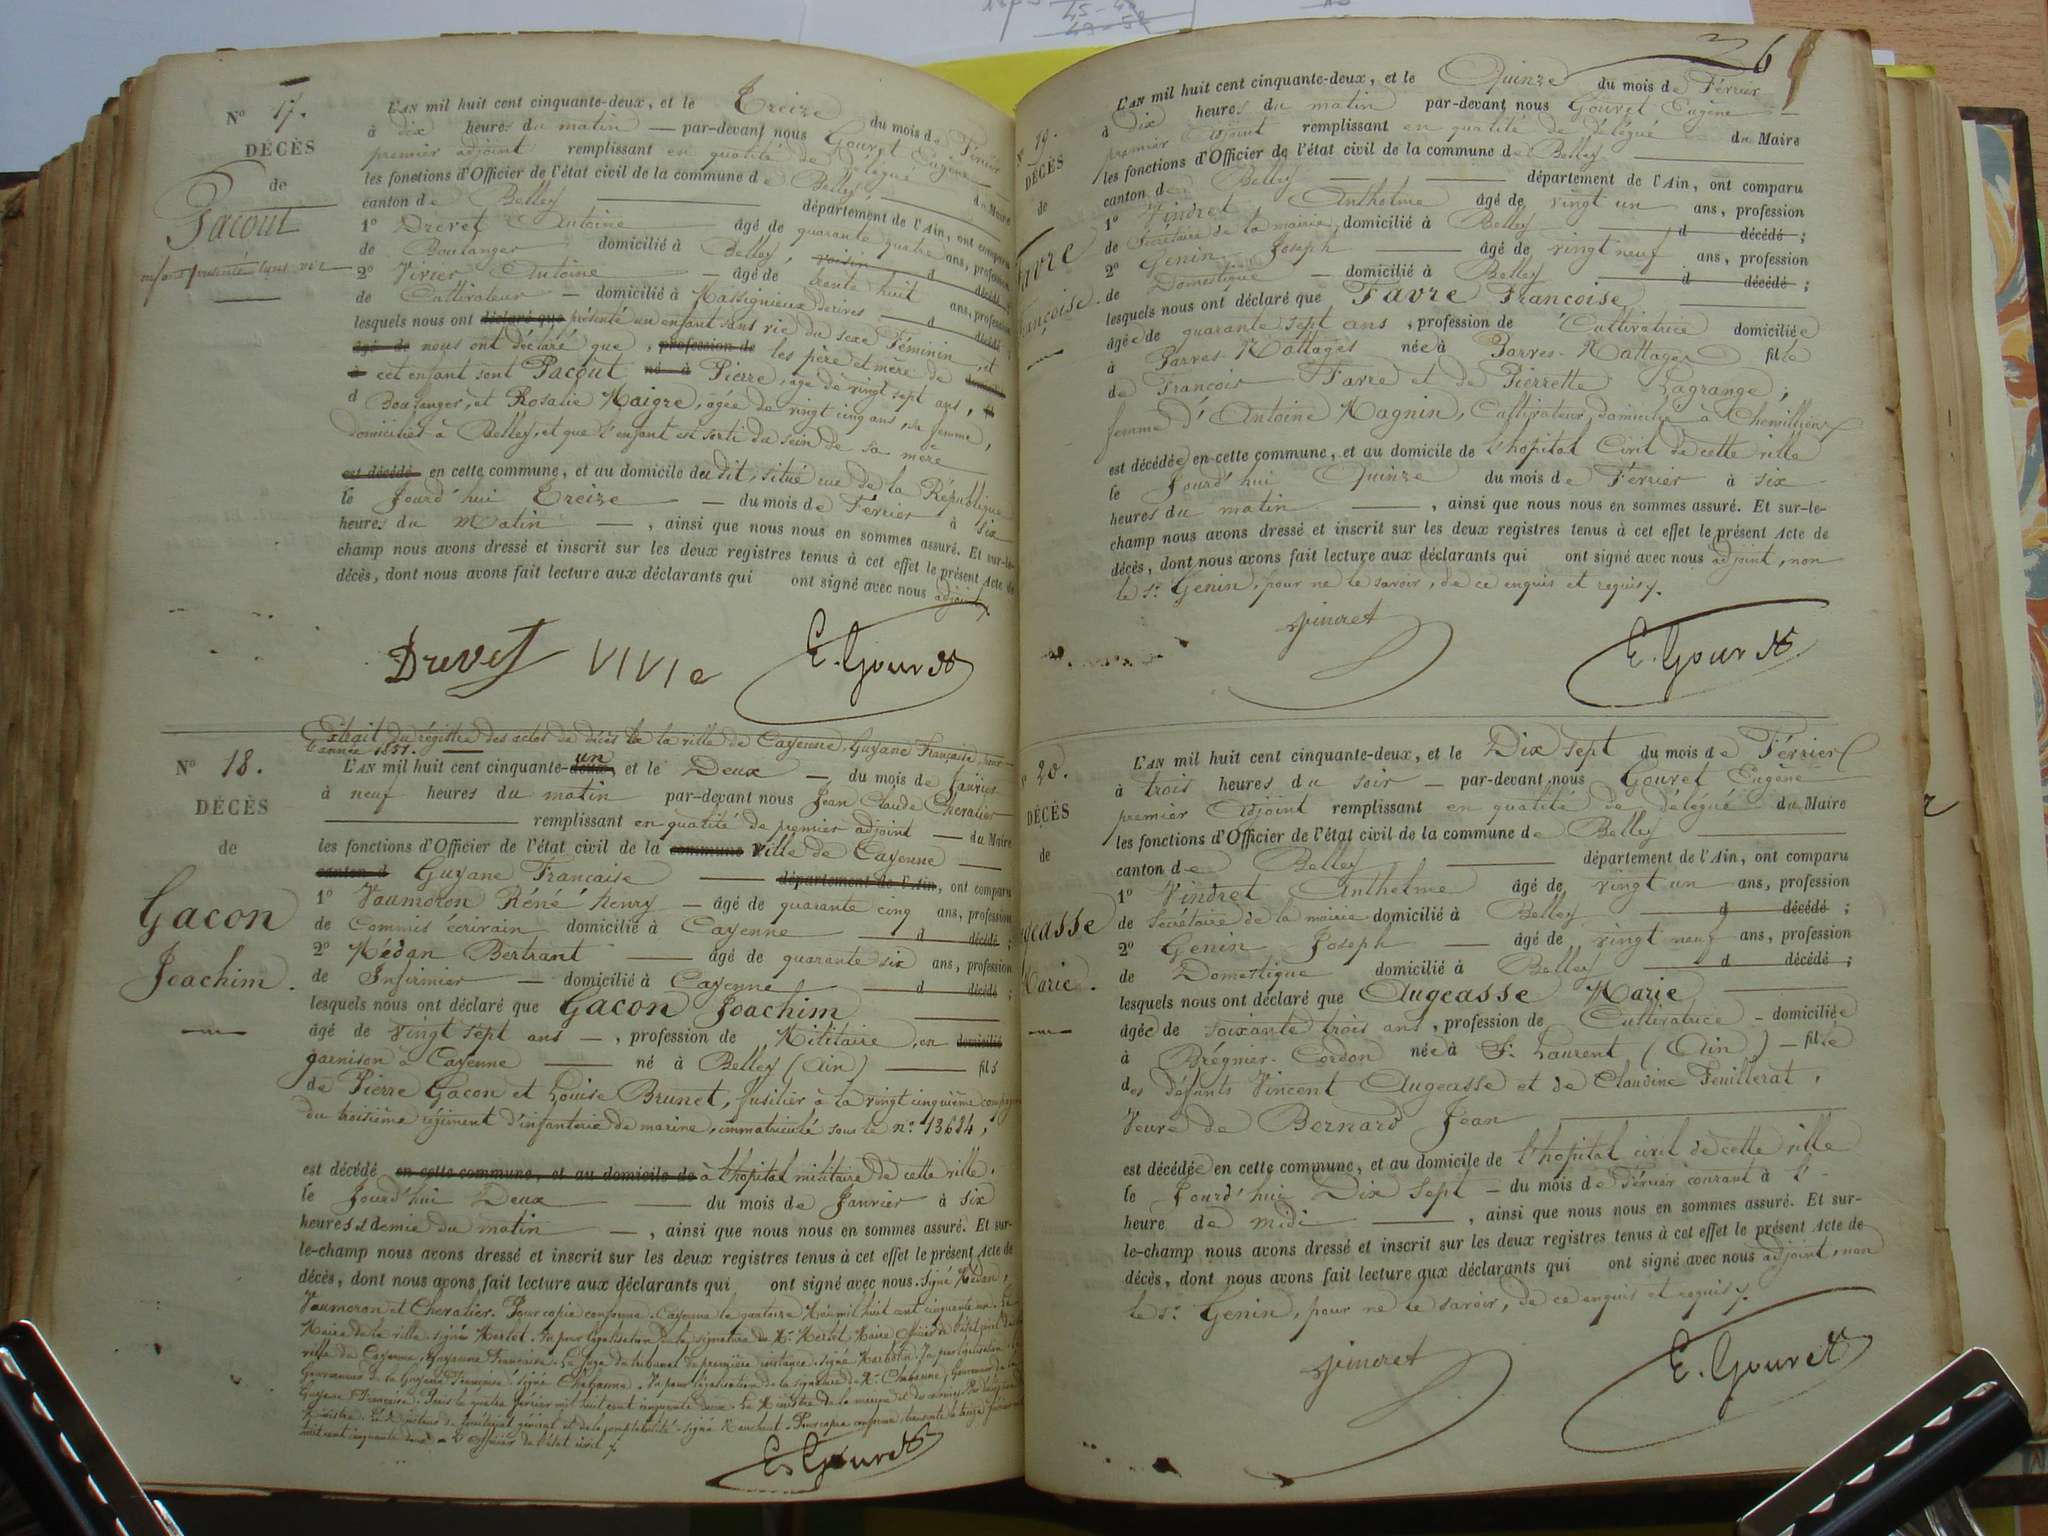 N° 17.
DÉCÈS
de
Pacout
enfant présenté sans vie
L'AN mil huit cent cinquante-deux, et le Treize du mois de Février
à dix heures du matin — par-devant nous Gouvet Eugène
premier adjoint remplissant en qualité de délégué du Maire
les fonctions d'Officier de l'état civil de la commune de Belley
canton de Belley département de l'Ain, ont comparu
1° Drevet Antoine âgé de quarante quatre ans, profession
de Boulanger domicilié à Belley, voisin d décédé ;
2° Vivier Antoine — âgé de trente huit ans, profession
de Cultivateur — domicilié à Massignieux de rives d décédé ;
lesquels nous ont déclaré que présenté un enfant sans vie du sexe Féminin, et
âgé de nous ont déclaré que, profession de les père et mère de
à cet enfant sont Pacout né à Pierre, âgé de vingt sept ans,
d Boulanger, et Rosalie Maigre, âgée de vingt cinq ans, sa femme,
domiciliés à Belley, et que l'enfant est sorti du sein de sa mère
est décédé en cette commune, et au domicile du dit, situé rue de la République
le Jourd'hui Treize — du mois de Février à six
heures du Matin —, ainsi que nous nous en sommes assuré. Et sur-le-
champ nous avons dressé et inscrit sur les deux registres tenus à cet effet le présent Acte de
décès, dont nous avons fait lecture aux déclarants qui ont signé avec nous adjoint.
Drevet VIVIe E. Gouvet
N° 18.
DÉCÈS
de
Gacon
Joachim.
Extrait du régistre des actes de décès de la ville de Cayenne, Guyane Française, pour
l'année 1851.
L'AN mil huit cent cinquante-deux un, et le Deux — du mois de Janvier
à neuf heures du matin par-devant nous Jean Claude Chevalier
remplissant en qualité de premier adjoint — du Maire
les fonctions d'Officier de l'état civil de la commune Ville de Cayenne
canton d Guyane Française département de l'Ain, ont comparu
1° Vaumoron Réné henry — âgé de quarante cinq ans, profession
de Commis écrivain domicilié à Cayenne d décédé ;
2° Médan Bertrant âgé de quarante six ans, profession
de Infirmier — domicilié à Cayenne d décédé ;
lesquels nous ont déclaré que Gacon Joachim
âgé de vingt sept ans —, profession de Militaire, en domicilié
garnison à Cayenne né à Belley (Ain) fils
de Pierre Gacon et Louise Brunet, fusilier à la vingt cinquième compagnie
du troisième régiment d'infanterie de marine, immatriculé sous le n° 13624,
est décédé en cette commune, et au domicile de à l'hopital militaire de cette ville.
le Jourd'hui Deux du mois de Janvier à six
heures et demie du matin —, ainsi que nous nous en sommes assuré. Et sur-
le-champ nous avons dressé et inscrit sur les deux registres tenus à cet effet le présent Acte de
décès, dont nous avons fait lecture aux déclarants qui ont signé avec nous. signé Médan,
Vaumoron et Chevalier. Pour copie conforme. Cayenne le quatorze Mai mil huit cent cinquante un. Le
Maire de la ville. signé Merlot. Vu pour légalisation de la signature de Mr. Merlot Maire, officier de l'état civil de la
ville de Cayenne, Guyanne Française. Le Juge du tribunal de première instance. signé. Vu pour légalisation
Gouverneur de la Guyane Française signé Chabanne. Vu pour légalisation de la signature de Mr. Chabanne, Gouverneur de la
Guyane Française. Paris le quatre février mil huit cent cinquante deux. Le Ministre de la marine et des colonies
Ministre. Le directeur du secrétariat général et de la comptabilité. signé. Pour copie conforme transcrite le treize février mil
huit cent cinquante deux. L'officier de l'état civil.
E. Gouvet
26
19.
DÉCÈS
de
Favre
Françoise.
L'AN mil huit cent cinquante-deux, et le Quinze du mois de Février
à dix heures du matin par-devant nous Gouvet Eugène
premier adjoint remplissant en qualité de délégué du Maire
les fonctions d'Officier de l'état civil de la commune de Belley
canton de Belley département de l'Ain, ont comparu
1° Vindret Anthelme âgé de vingt un ans, profession
de Secrétaire de la mairie, domicilié à Belley d décédé ;
2° Genin Joseph âgé de vingt neuf ans, profession
de Domestique — domicilié à Belley d décédé ;
lesquels nous ont déclaré que Favre Françoise
âgée de quarante sept ans, profession de Cultivatrice domiciliée
à Parves-Nattages née à Parves-Nattages fille
de François Favre et de Pierrette Lagrange,
femme d'Antoine Magnin, Cultivateur, domicilié à Chemillieu
est décédée en cette commune, et au domicile de l'hopital Civil de cette ville
le Jourd'hui Quinze du mois de Février à six
heures du matin, ainsi que nous nous en sommes assuré. Et sur-le-
champ nous avons dressé et inscrit sur les deux registres tenus à cet effet le présent Acte de
décès, dont nous avons fait lecture aux déclarants qui ont signé avec nous adjoint, non
le sr. Genin, pour ne le savoir, de ce enquis et requis.
Vindret E. Gouvet
20.
DÉCÈS
de
Augeasse
Marie.
L'AN mil huit cent cinquante-deux, et le Dix sept du mois de Février
à trois heures du soir — par-devant nous Gouvet Eugène
premier adjoint remplissant en qualité de délégué du Maire
les fonctions d'Officier de l'état civil de la commune de Belley
canton de Belley département de l'Ain, ont comparu
1° Vindret Anthelme âgé de vingt un ans, profession
de Secrétaire de la mairie domicilié à Belley d décédé ;
2° Genin Joseph — âgé de vingt neuf ans, profession
de Domestique domicilié à Belley d décédé ;
lesquels nous ont déclaré que Augeasse Marie
âgée de soixante trois ans, profession de Cultivatrice - domiciliée
à Brégnier-Cordon née à St. Laurent (Ain) — fille
des défunts Vincent Augeasse et de Claudine Feuillerat,
Veuve de Bernard Jean
est décédée en cette commune, et au domicile de l'hopital civil de cette ville
le Jourd'hui Dix sept — du mois de Février courant à l'-
heure de midi, ainsi que nous nous en sommes assuré. Et sur-
le-champ nous avons dressé et inscrit sur les deux registres tenus à cet effet le présent Acte de
décès, dont nous avons fait lecture aux déclarants qui ont signé avec nous adjoint, non
le sr. Genin, pour ne le savoir, de ce enquis et requis.
Vindret E. Gouvet